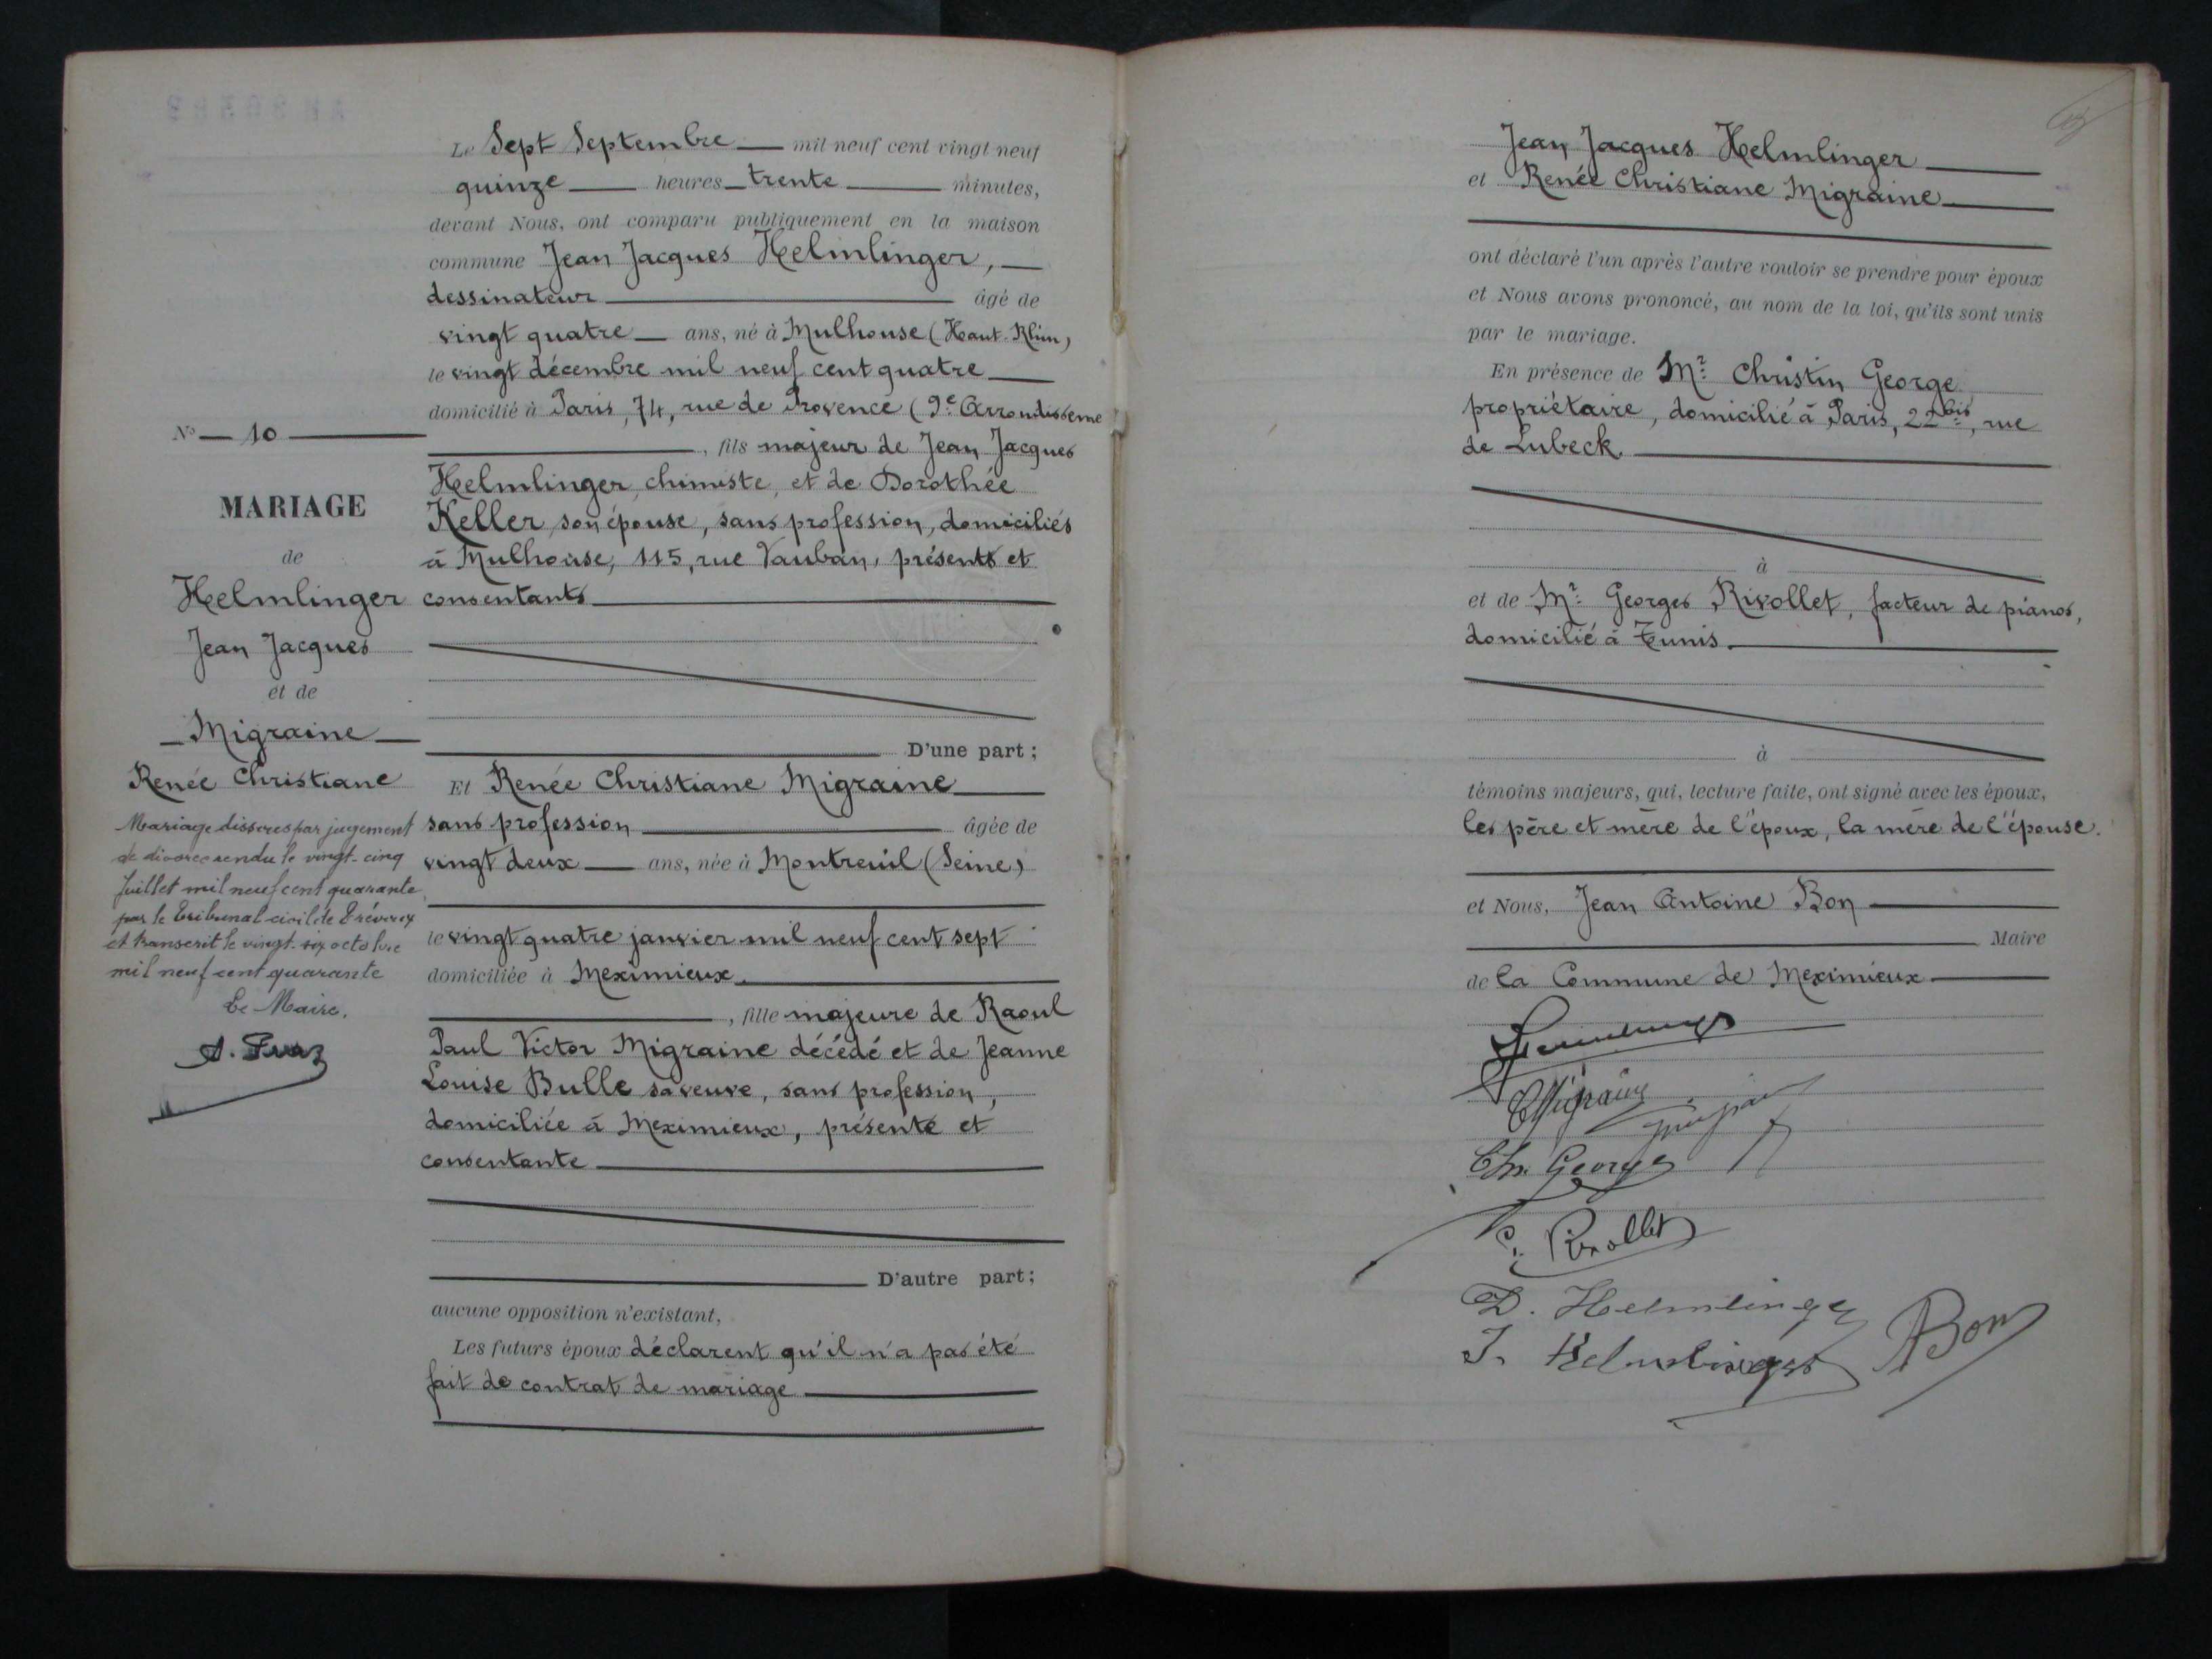 Le Sept Septembre mil neuf cent vingt neuf
quinze heures trente minutes,
devant Nous, ont comparu publiquement en la maison
commune Jean Jacques Helmlinger,
dessinateur âgé de
vingt quatre ans, né à Mulhouse (Haut-Rhin)
le vingt décembre mil neuf cent quatre
domicilié à Paris, 74, rue de Provence (9e Arrondisseme
, fils majeur de Jean Jacques
Helmlinger, chimiste, et de Dorothée
Keller son épouse, sans profession, domiciliés
à Mulhouse, 115, rue Vauban, présents et
consentants
D'une part ;
Et Renée Christiane Migraine
sans profession âgée de
vingt deux ans, née à Montreuil (Seine)
le vingt quatre janvier mil neuf cent sept
domiciliée à Meximieux
, fille majeure de Raoul
Paul Victor Migraine décédé et de Jeanne
Louise Bulle sa veuve, sans profession,
domiciliée à Meximieux, présente et
consentante
D'autre part ;
aucune opposition n'existant,
Les futurs époux déclarent qu'il n'a pas été
fait de contrat de mariage
No 10
MARIAGE
de
Helmlinger
Jean Jacques
et de
Migraine
Renée Christiane
Mariage dissous par jugement
de divorce rendu le vingt-cinq
Juillet mil neuf cent quarante
par le Tribunal civil de Trévoux
et transcrit le vingt-six octobre
mil neuf cent quarante
Le Maire,
Jean Jacques Helmlinger
et Renée Christiane Migraine
ont déclaré l'un après l'autre vouloir se prendre pour époux
et Nous avons prononcé, au nom de la loi, qu'ils sont unis
par le mariage.
En présence de Mr Christin George
propriétaire, domicilié à Paris, 22 bis, rue
de Lubeck
à
et de Mr Georges Rivollet, facteur de pianos,
domicilié à Tunis
à
témoins majeurs, qui, lecture faite, ont signé avec les époux,
les père et mère de l'époux, la mère de l'épouse.
et Nous, Jean Antoine Bon
Maire
de la Commune de Meximieux
CMigraine
Chr. George
G. Rivollet
D. Helmlinger
J. Helmlinger
Bon